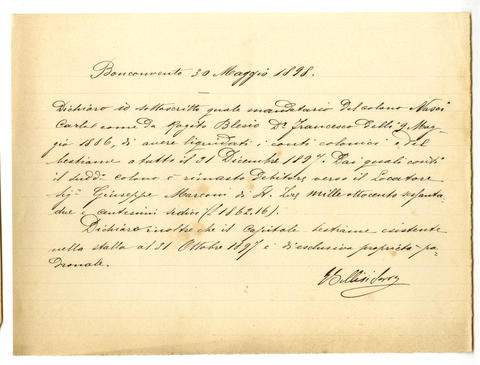 Bonconvento 30 Maggio 1898.
Dichiaro io sottoscritto quale mandatario del colono
come da Rogito Blesio Dr. Francesco delli 9 Mag-
gio 1886, di avere liquidati i conti colonici e del
bestiame a tutto il 31 Dicembre 1897. Dai quali conti
il sudd. colono è rimasto debitore verso il Locatore
Sig. Giuseppe Marconi di Lire mille ottocento sessanta
due e centesimi sedici (£ 1862.16).
Dichiaro inoltre che il Capitale bestiame esistente
nella stalla al 31 Ottobre 1897 è di esclusiva proprietà pa-
dronale.